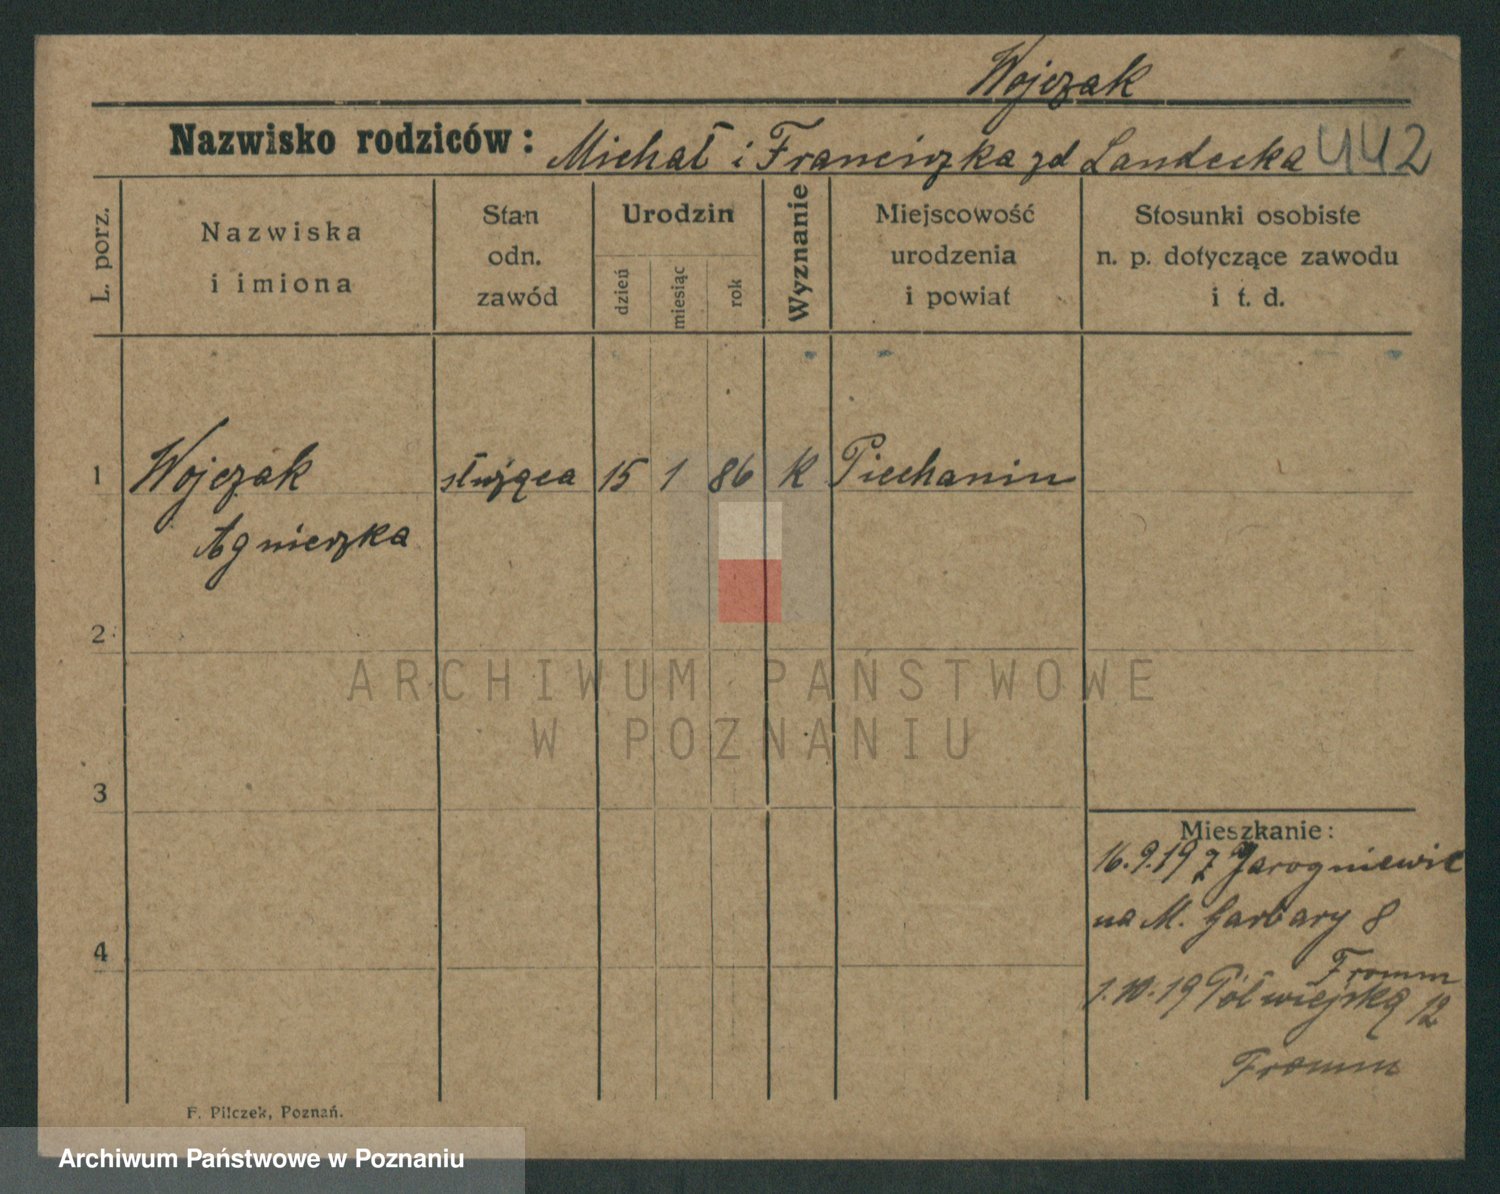 Wojczak
Nazwisko rodziców: Michał i Franciszka zd Landecka 442
L. porz.
Nazwiska
i imiona
Stan
odn.
zawód
Urodzin
dzień
miesiąc
rok
Wyznanie
Miejscowość
urodzenia
i powiat
Stosunki osobiste
n. p. dotyczące zawodu
i t. d.
1 Wojczak służąca 15 1 86 K Piechanin
Agnieszka
2
3
4
Mieszkanie:
16.9.19 z Jarogniewic
na M. Garbary 8
Fromm
1.10.19 Półwiejską 12
Fromm
F. Pilczek, Poznań.
ARCHIWUM PAŃSTWOWE
W POZNANIU
Archiwum Państwowe w Poznaniu